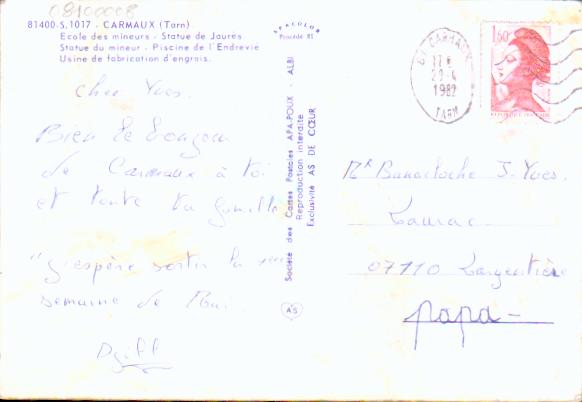 08100008
81400-S.1017 - CARMAUX (Tarn)
Ecole des mineurs - Statue de Jaurès
Statue du mineur - Piscine de l'Endrevié
Usine de fabrication d'engrais.
APACOLOR
Procédé 81
Cher Yves.
Bien le bonjour
de Carmaux à toi
et toute ta famille
"J'espère sortir la 1ère
semaine de Mai.
Société des Cartes Postales APA-POUX - ALBI
Reproduction interdite
Exclusivité AS DE CŒUR
AS
81 CARMAUX
17 H
29-4
1982
TARN
1,60
REPUBLIQUE FRANÇAISE
Mr Banactoche J-Yves.
Laurac
07110 Largentière
papa-